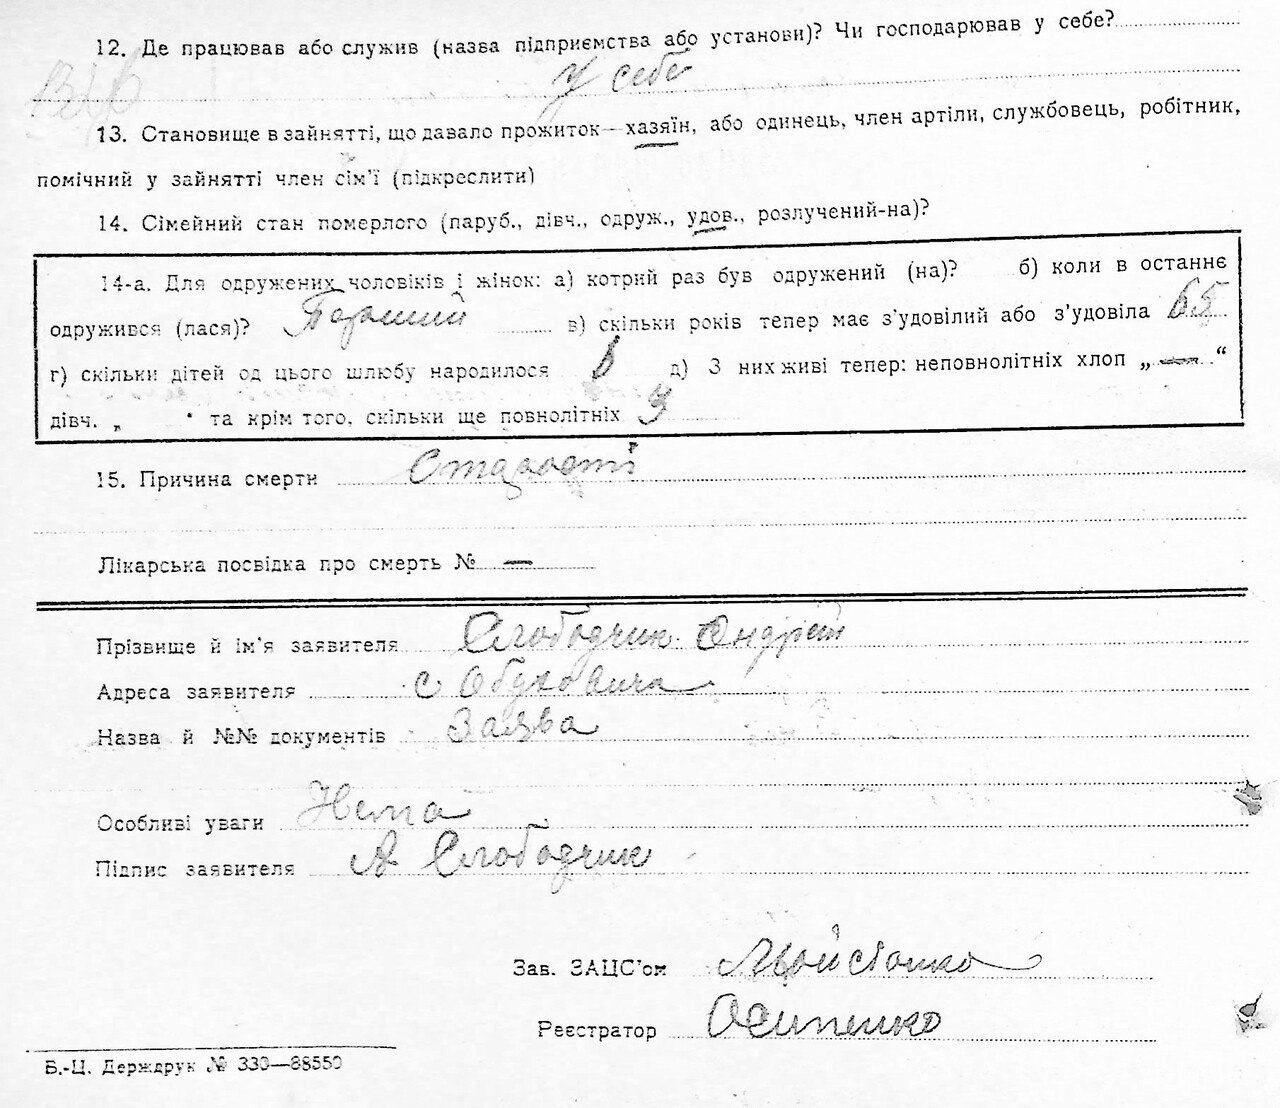 12. Де працював або служив (назва підприємства або установи)? Чи господарював у себе?
У себе
13. Становище в зайнятті, що давало прожиток—хазяїн, або одинець, член артіли, службовець, робітник,
помічний у зайнятті член сім'ї (підкреслити)
14. Сімейний стан померлого (паруб., дівч., одруж., удов., розлучений-на)?
14-а. Для одружених чоловіків і жінок: а) котрий раз був одружений (на)? б) коли в останнє
одружився (лася)? Перший в) скільки років тепер має з'удовілий або з'удовіла 65
г) скільки дітей од цього шлюбу народилося д) З них живі тепер: неповнолітніх хлоп „—“
дівч. „ “ та крім того, скільки ще повнолітніх
15. Причина смерти Старости
Лікарська посвідка про смерть № —
Прізвище й ім'я заявителя Слободчик Андрій
Адреса заявителя с Обуховича
Назва й №№ документів Заява
Особливі уваги Нема
Підпис заявителя А Слободчик
Зав. ЗАЦС'ом
Реєстратор Осипенко
Б.-Ц. Держдрук № 330—88550